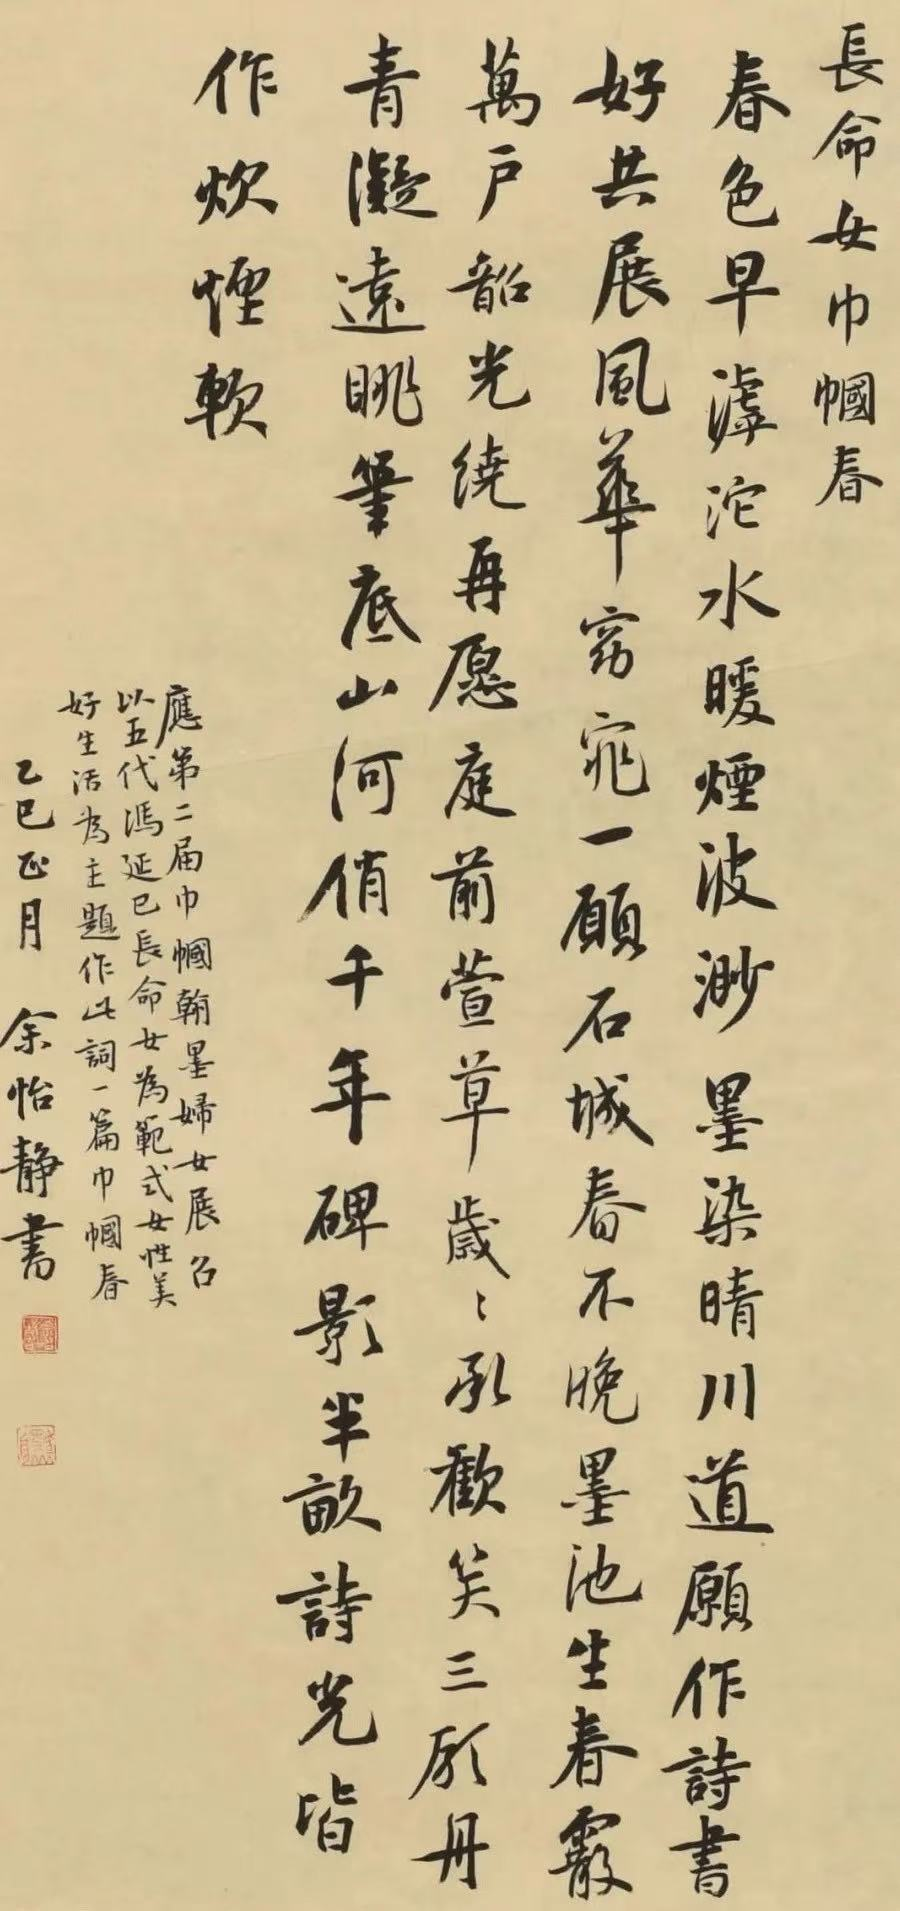 長命女巾幗春
春色早滹沱水暖煙波渺墨染晴川道願作詩書
好共展風華窈窕一願石城春不晚墨池生春霞
萬戶韶光繞再愿庭前萱草歲〻承歡笑三願丹
青凝遠眺筆底山河俏千年碑影半畝詩光皆
作炊煙軟
應第二届巾幗翰墨婦女展召
以五代馮延巳長命女為範式女性美
好生活為主題作此詞一篇巾幗春
乙巳正月 余怡靜書